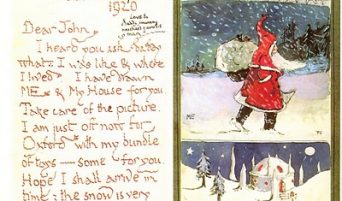 1920
Love to
Dear John
I heard you ask daddy
what I was like & where
I lived I have drawn
ME & My House for you
Take care of the picture.
I am just off now for
Oxford with my bundle
of toys — some for you.
Hope I shall arrive in
time: the snow is very
ME